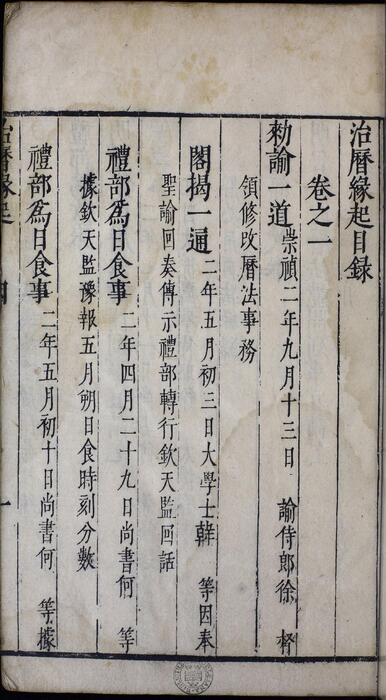 治曆緣起目錄
卷之一
勑諭一道 崇禎二年九月十三日 諭侍郎徐 督
領修改曆法事務
閣揭一通 二年五月初三日大學士韓 等因奉
聖諭回奏傳示禮部轉行欽天監回話
禮部爲日食事 二年四月二十九日尚書何 等
據欽天監豫報五月朔日食時刻分數
禮部爲日食事 二年五月初十日尚書何 等據
治曆緣起